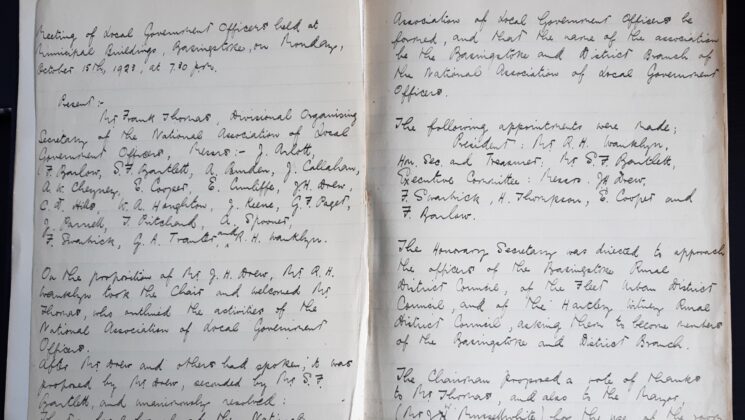 Meeting of Local Government Officers held at
Municipal Buildings, Basingstoke, on Monday,
October 15th, 1923, at 7.30 p.m.
Present :-
Mr Frank Thomas, Divisional Organising
Secretary of the National Association of Local
Government Officers, Messrs :- J. Arlott,
F. Barlow, S.F. Bartlett, A. Burden, J. Callahan,
A.V. Cheyney, E. Cooper, E. Cunliffe, J.H. Drew,
C.J. Hills, K.A. Houghton, J. Keene, G.F. Paget,
J. Purnell, T. Pritchard, A. Spooner,
F. Swarbick, G.A. Tranter, and R.H. Wanklyn.
On the proposition of Mr J.H. Drew, Mr R.H.
Wanklyn took the Chair and welcomed Mr
Thomas, who outlined the activities of the
National Association of Local Government
Officers.
After Mr Drew and others had spoken, it was
proposed by Mr Drew, seconded by Mr S.F.
Bartlett, and unanimously resolved:
the National
Association of Local Government Officers be
formed, and that the name of the association
be the Basingstoke and District Branch of
the National Association of Local Government
Officers.
The following appointments were made;
President: Mr R.H. Wanklyn,
Hon. Sec. and Treasurer, Mr S.F. Bartlett,
Executive Committee: Messrs. J.H. Drew,
F. Swarbick, H. Thompson, E. Cooper and
F. Barlow.
The Honorary Secretary was directed to approach
the officers of the Basingstoke Rural
District Council, of the Fleet Urban District
Council, and of the Hartley Witney Rural
District Council, asking them to become members
of the Basingstoke and District Branch.
The Chairman proposed a vote of thanks
to Mr Thomas, and also to the Mayor,
for the use of the room